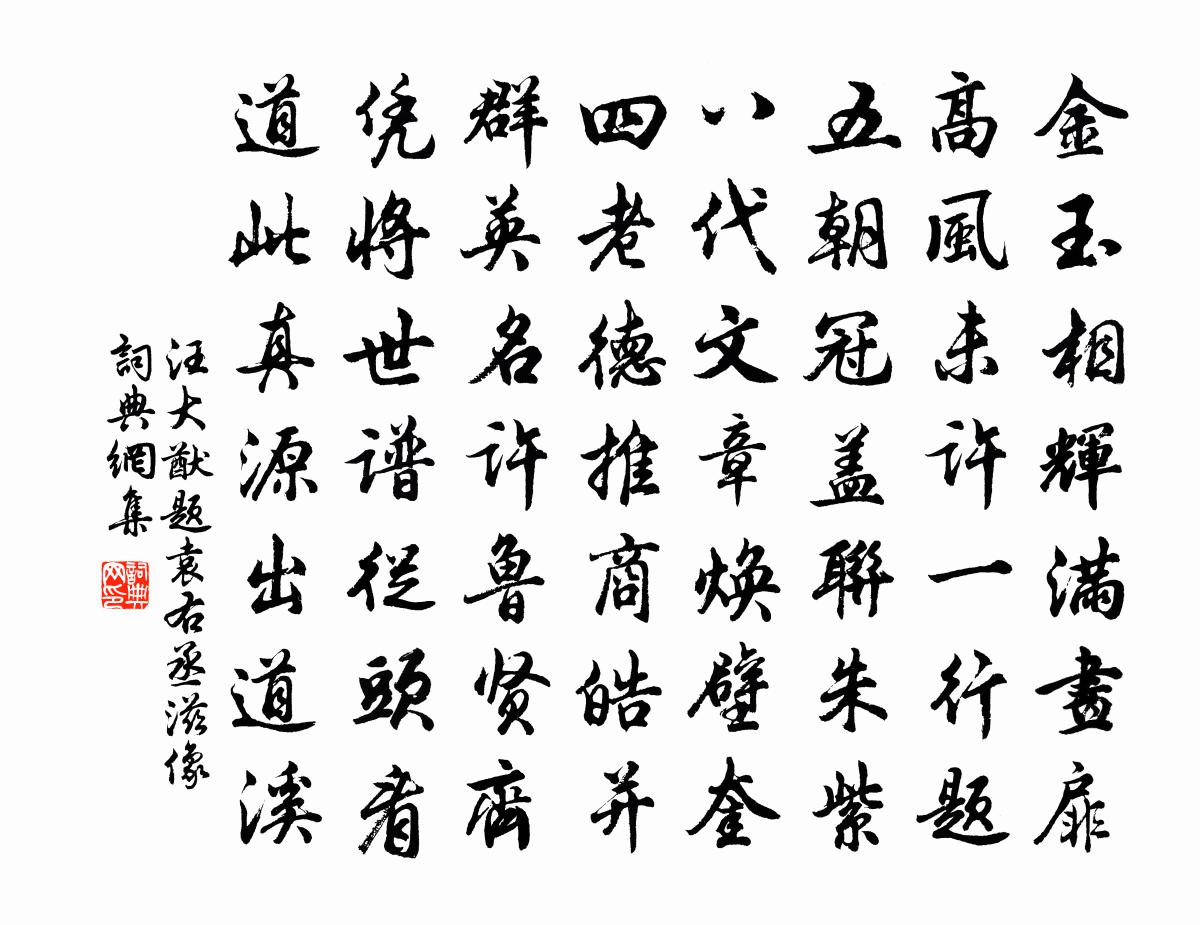 金玉相輝滿畫扉
髙風未许一行题
五朝冠盖聯朱紫
八代文章焕璧奎
四老德推商皓并
群英名许魯贤齊
凭將世谱從頭看
道此真源出道溪
汪大猷题袁右丞滋像
詞典網集
詞典网印